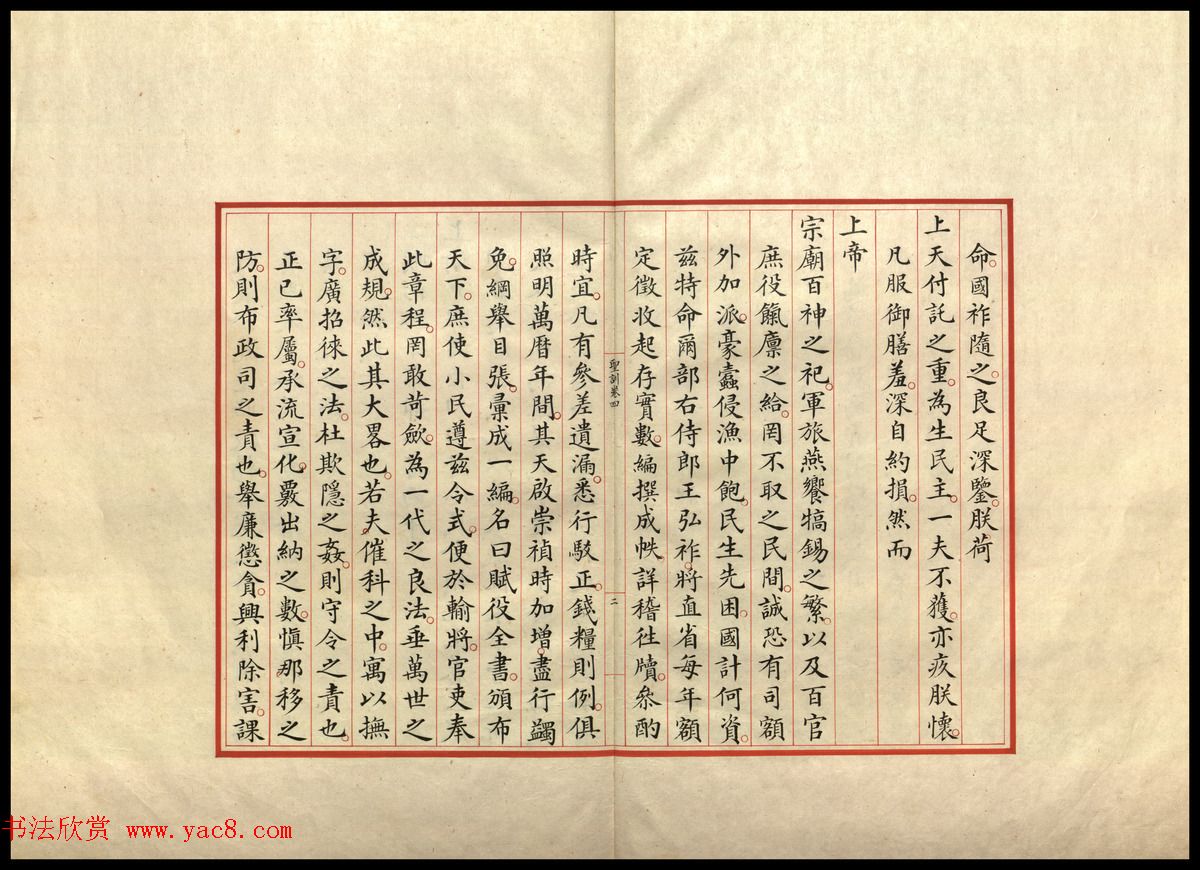 命。國祚隨之。良足深鑒。朕荷
上天付託之重。為生民主。一夫不獲。亦疚朕懷。
凡服御膳羞。深自約損。然而
上帝
宗廟百神之祀。軍旅燕饗犒錫之繁。以及百官
庶役餼廩之給。罔不取之民間。誠恐有司額
外加派。豪蠹侵漁中飽。民生先困。國計何資。
兹特命爾部右侍郎王弘祚。將直省每年額
定徵收起存實數。編撰成帙。詳稽往牘。參酌
聖訓卷四 二
時宜。凡有參差遺漏。悉行駁正。錢糧則例。俱
照明萬曆年間。其天啟崇禎時加增。盡行蠲
免。綱舉目張。彙成一編。名曰賦役全書。頒布
天下。庶使小民遵兹令式。便於輸將。官吏奉
此章程。罔敢苛歛。為一代之良法。垂萬世之
成規。然此其大畧也。若夫催科之中。寓以撫
字。廣招徠之法。杜欺隱之姦。則守令之責也。
正已率屬。承流宣化。覈出納之數。慎那移之
防。則布政司之責也。舉廉懲貪。興利除害。課
书法欣赏 www.yac8.com